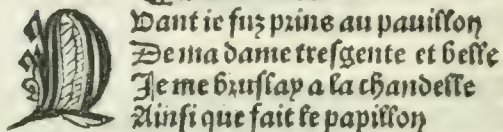 Quant ie fuz prins au pauillon
De ma dame tresgente et belle
Je me bruslay a la chandelle
Ainsi que fait le papillon